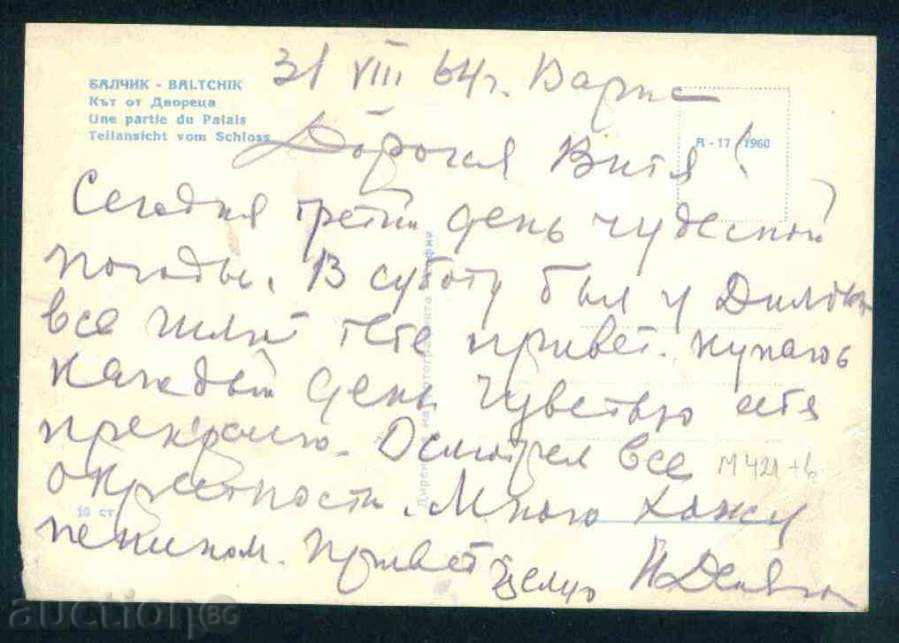 БАЛЧИК - BALTCHIK
Кът от Двореца
Une partie du Palais
Teilansicht vom Schloss
31 VIII 64 г. Варна
R - 17 1960
Дорогая Витя!
Сегодня третий день чудесной
погоды. В суботу был у
все шлют тебе привет. Купаюсь
каждый день чувствую себя
прекрасно. Осмотрел все
М 421 + б
окрестности. Много хожу
10 ст.
пешком. Привет Целую
auction BG